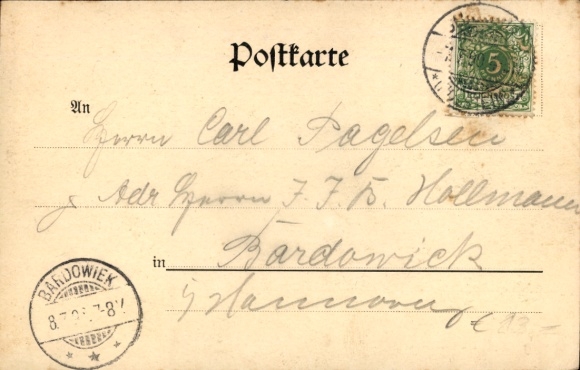 Postkarte
5
An
Herrn Carl Pagelsen
Adr Herrn J. J. H. Hollmann
in Bardowick
Hannover
€ 13.-
BARDOWIEK
8.7. 7-8V